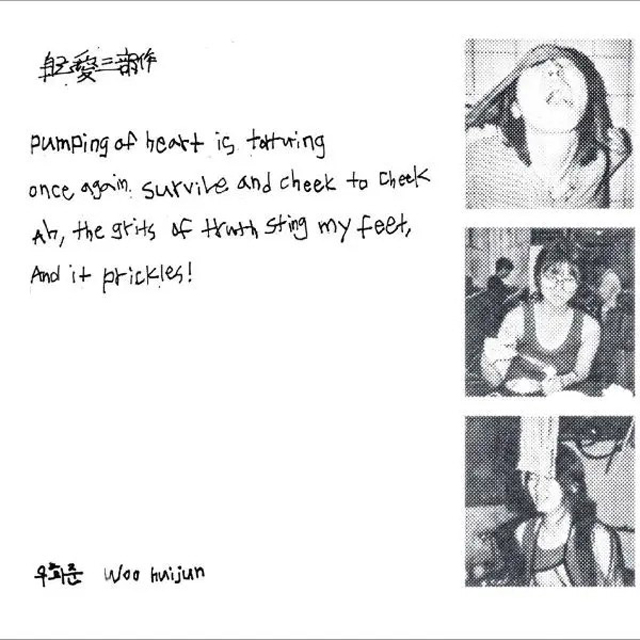 自己愛三部作
Pumping of heart is torturing
once again. Survive and cheek to cheek
Ah, the grits of truth sting my feet,
And it prickles!
우희준 Woo huijun